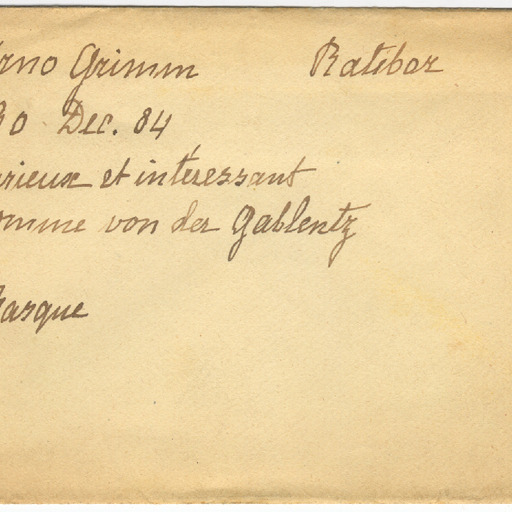 rno Grimm Ratibor
30 Dec. 84
rieux et interessant
omme von der Gablentz
Basque